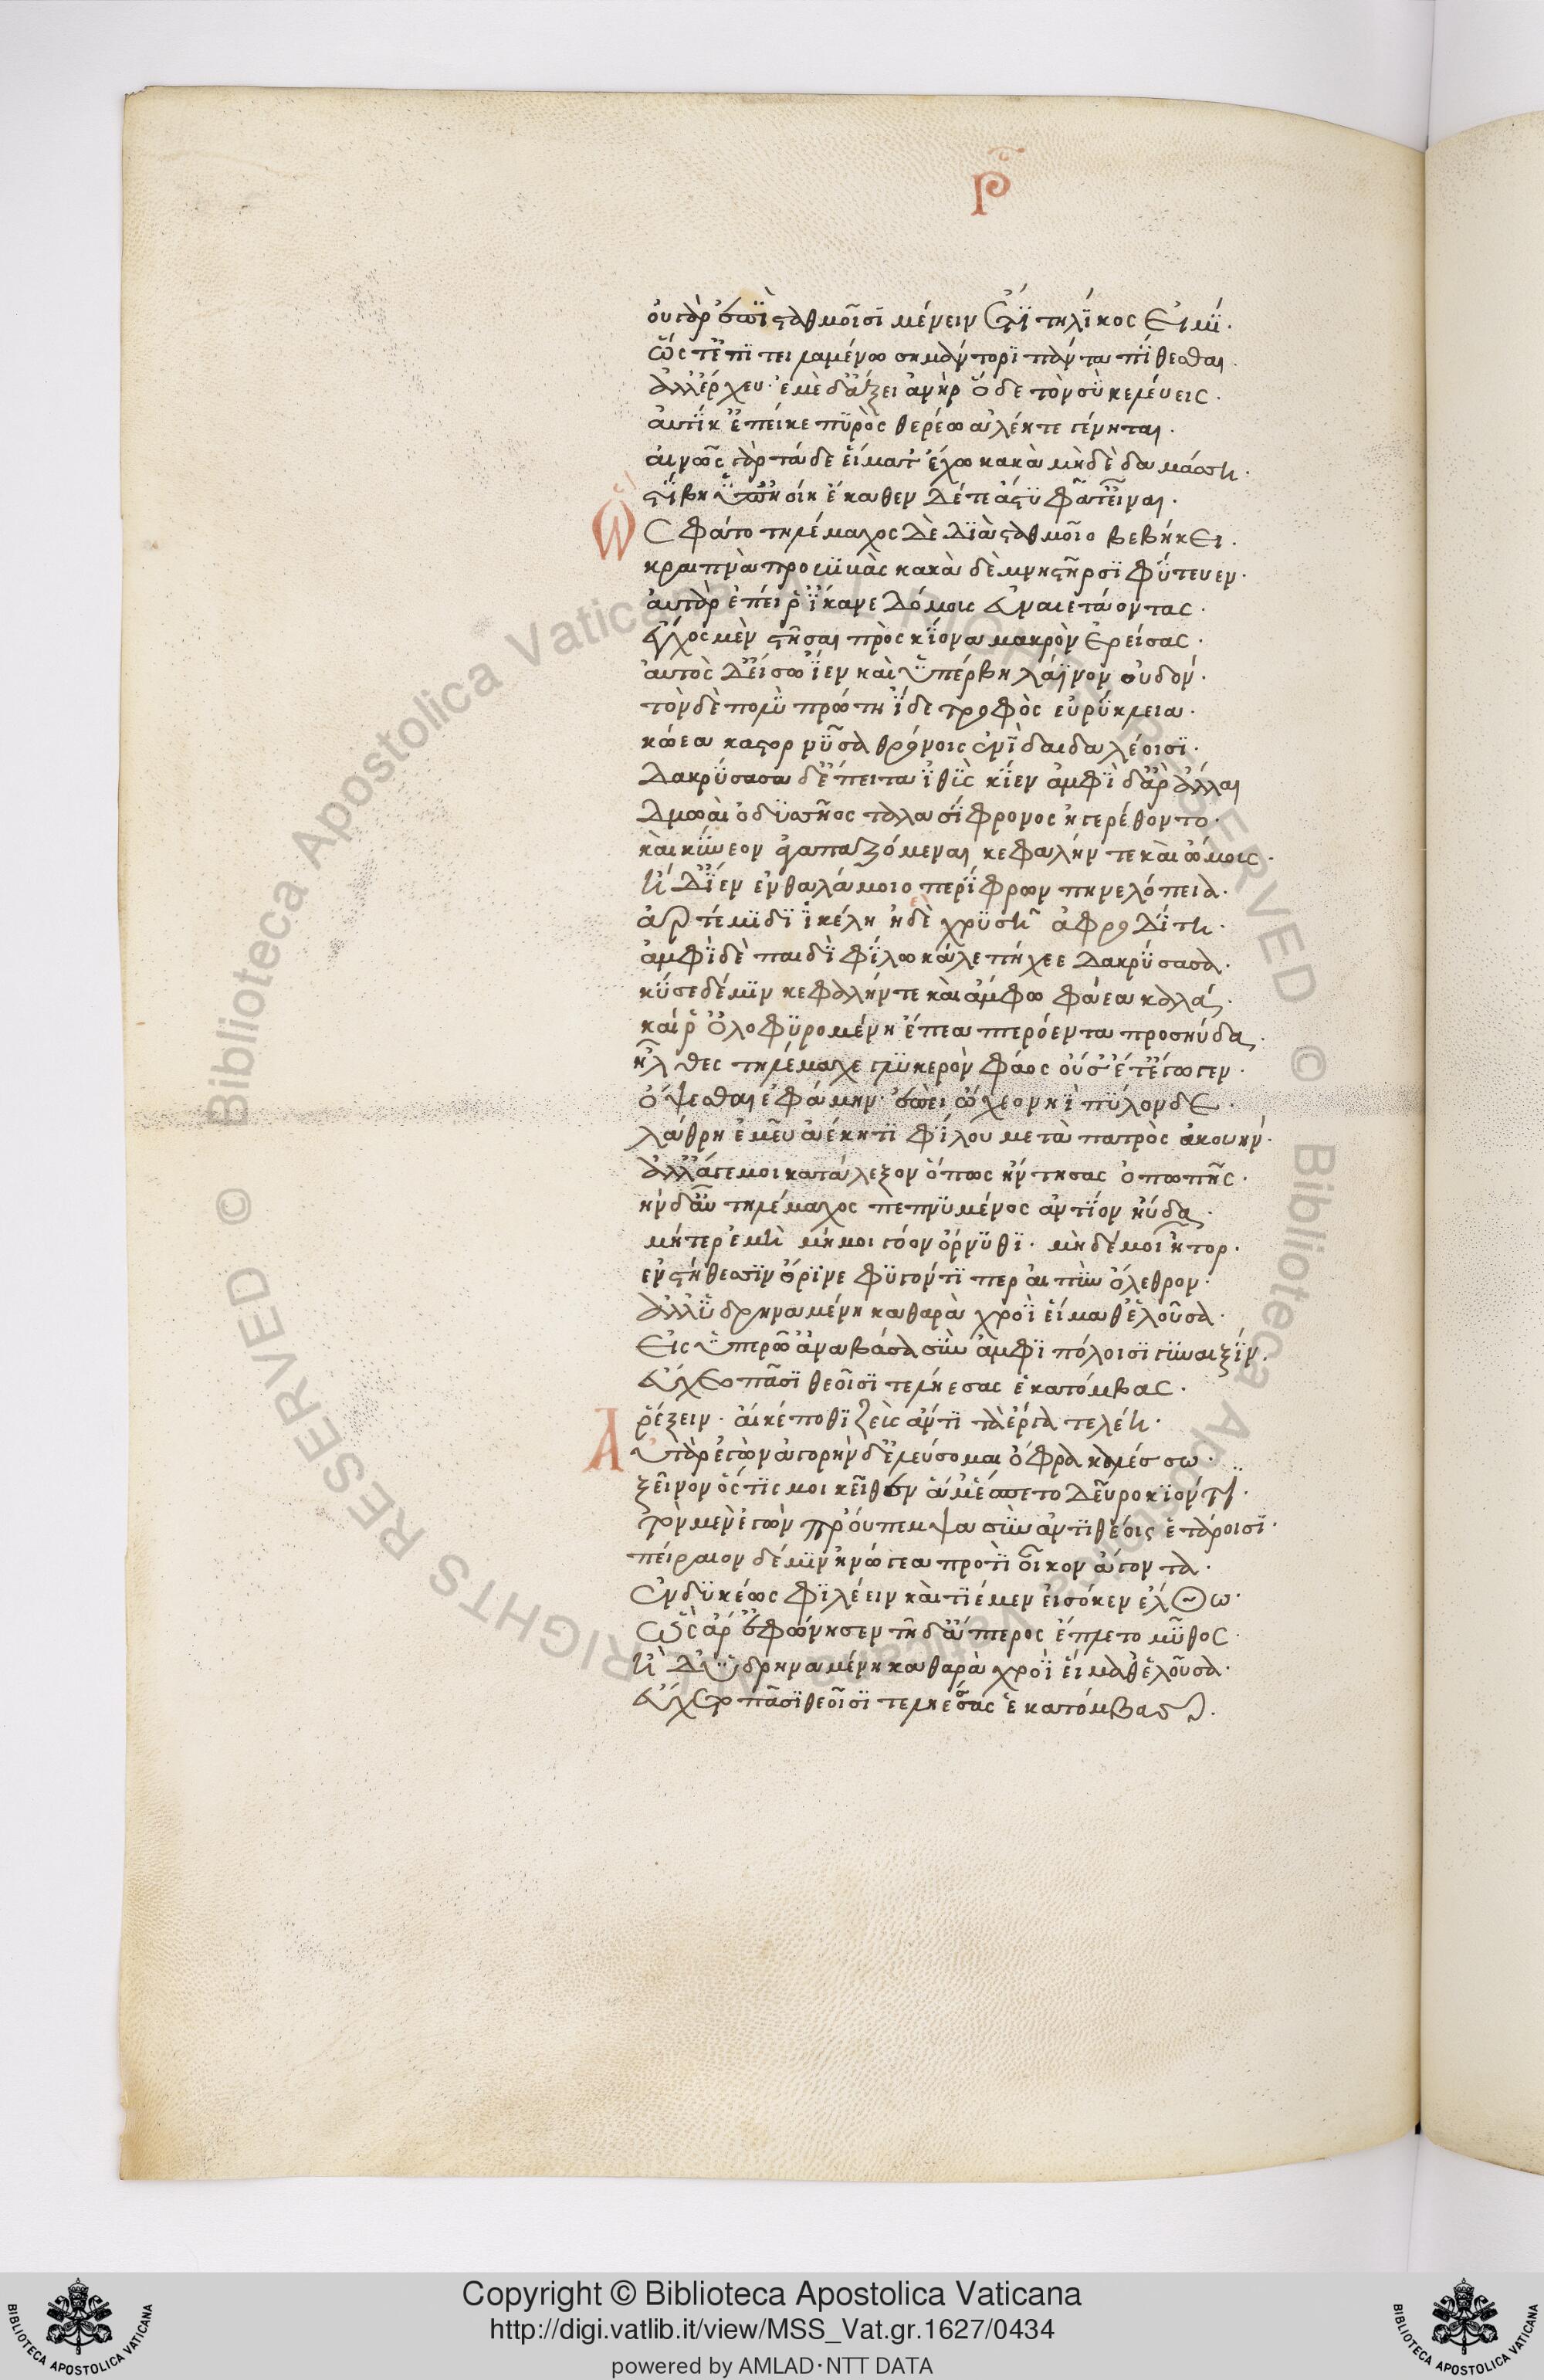 ρ̃
οὐ γὰρ ἐπὶ σταθμοῖσι μένειν ἔτι τηλίκος εἰμί·
ὥς τ' ἐπιτειλαμένω σημάντορι πάντα πιθέσθαι.
ἀλλ' ἔρχευ· ἐμὲ δ' ἄξει ἀνὴρ ὅδε τὸν σὺ κελεύεις·
αὐτίκ' ἐπεί κε πυρὸς θερέω ἀλέη τε γένηται.
αἰνῶς γὰρ τάδε εἵματ' ἔχω κακὰ μὴ δὲ δαμάσση·
στίβη ὑπηοίη ἔκαθεν δέ τε ἄστυ φάτ' εἶναι·
Ὣς φάτο τηλέμαχος δὲ διὰ σταθμοῖο βεβήκει·
κραιπνὰ προβιβὰς κακὰ δὲ μνηστῆρσι φύτευεν·
αὐτὰρ ἐπεί ῥ' ἵκανε δόμους εὐναιετάοντας·
ἔγχος μὲν στῆσαι πρὸς κίονα μακρὸν ἐρείσας·
αὐτὸς δ' εἴσω ἴεν καὶ ὑπέρβη λάϊνον οὐδόν·
τὸν δὲ πολὺ πρώτη ἴδε τροφὸς εὐρύκλεια·
κώεα καστορνῦσα θρόνοις ἔνι δαιδαλέοισι·
δακρύσασα δ' ἔπειτα ἰθὺς κίεν ἀμφὶ δ' ἄρ' ἄλλαι
δμωαὶ ὀδυσσῆος ταλασίφρονος ἠγερέθοντο·
καὶ κύνεον ἀγαπαζόμεναι κεφαλήν τε καὶ ὤμους·
ἡ δ' ἴεν ἐν θαλάμοιο περίφρων πηνελόπεια·
ἀρτέμιδι ἰκέλη ἠδὲ χρυσῆ ἀφροδίτη·
ἀμφὶ δὲ παιδὶ φίλω βάλε πήχεε δακρύσασα·
κύσε δέ μιν κεφαλήν τε καὶ ἄμφω φάεα καλά·
καί ῥ' ὀλοφυρομένη ἔπεα πτερόεντα προσηύδα·
ἦλθες τηλέμαχε γλυκερὸν φάος οὔ σ' ἔτ' ἔγωγεν·
ὄψεσθαι ἐφάμην· ἐπεὶ ὤχεο νηὶ πύλονδε·
λάθρη ἐμεῦ ἀέκητι φίλου μετὰ πατρὸς ἀκουήν·
ἀλλ' ἄγε μοι κατάλεξον ὅπως ἤντησας ὀπωπῆς·
τὴν δ' αὖ τηλέμαχος πεπνυμένος ἀντίον ηὔδα·
μῆτερ ἐμὴ μή μοι γόον ὄρνυθι· μὴ δέ μοι ἦτορ·
ἐν στήθεσσιν ὄρινε φυγόντι περ αἰπὺν ὄλεθρον·
ἀλλ' ὑδρηναμένη καθαρὰ χροῒ εἵμαθ' ἑλοῦσα·
εἰς ὑπερῶ ἀναβᾶσα σὺν ἀμφιπόλοισι γυναιξίν·
εὔχεο πᾶσι θεοῖσι τελήεσσας ἑκατόμβας·
ῥέξειν· αἴ κέ ποθι ζεὺς ἄντιτα ἔργα τελέση·
Αὐτὰρ ἐγὼν ἀγορὴν δ' ἐλεύσομαι ὄφρα καλέσσω·
ξεῖνον ὅστις μοι κεῖθεν ἅμ' ἕσπετο δεῦρο κιόντι·
τὸν μὲν ἐγὼν προύπεμψα σὺν ἀντιθέοις ἑτάροισι·
πείραιον δέ μιν ἠνώγεα προτὶ οἶκον ἄγοντα·
ἐνδυκέως φιλέειν καὶ τιέμεν εἰσόκεν ἔλθω·
ὣς ἄρ' ἐφώνησεν τῆ δ' ἄπτερος ἔπλετο μῦθος·
ἡ δ' ὑδρηναμένη καθαρὰ χροῒ εἵμαθ' ἑλοῦσα·
εὔχετο πᾶσι θεοῖσι τεληέσσας ἑκατόμβας.
© Biblioteca Apostolica Vaticana ALL RIGHTS RESERVED © Biblioteca Apostolica Vaticana ALL RIGHTS RESERVED
Copyright © Biblioteca Apostolica Vaticana
http://digi.vatlib.it/view/MSS_Vat.gr.1627/0434
powered by AMLAD·NTT DATA
BIBLIOTECA APOSTOLICA VATICANA
BIBLIOTECA APOSTOLICA VATICANA